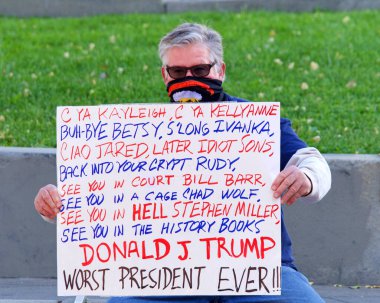 C YA KAYLEIGH, C YA KELLYANNE
BUH-BYE BETSY, S'LONG IVANKA,
CIAO JARED, LATER IDIOT SONS,
BACK INTO YOUR CRYPT RUDY,
SEE YOU IN COURT BILL BARR,
SEE YOU IN A CAGE CHAD WOLF,
SEE YOU IN HELL STEPHEN MILLER,
SEE YOU IN THE HISTORY BOOKS
DONALD J. TRUMP
WORST PRESIDENT EVER!!